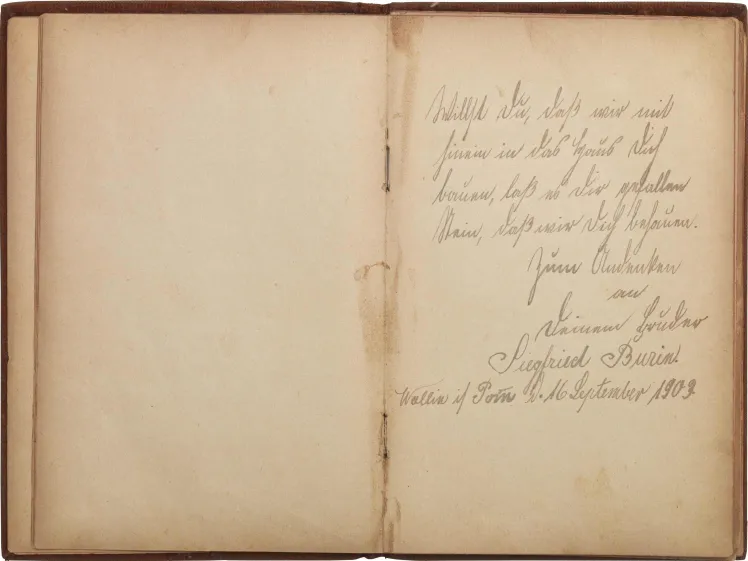 Willst Du, daß wir mit
hinein in das Haus Dich
bauen, laß es Dir gefallen
Stein, daß wir Dich behauen.
Zum Andenken
an
Deinem Bruder
Siegfried Burin.
Wollin i/ Pom d. 16 September 1903.